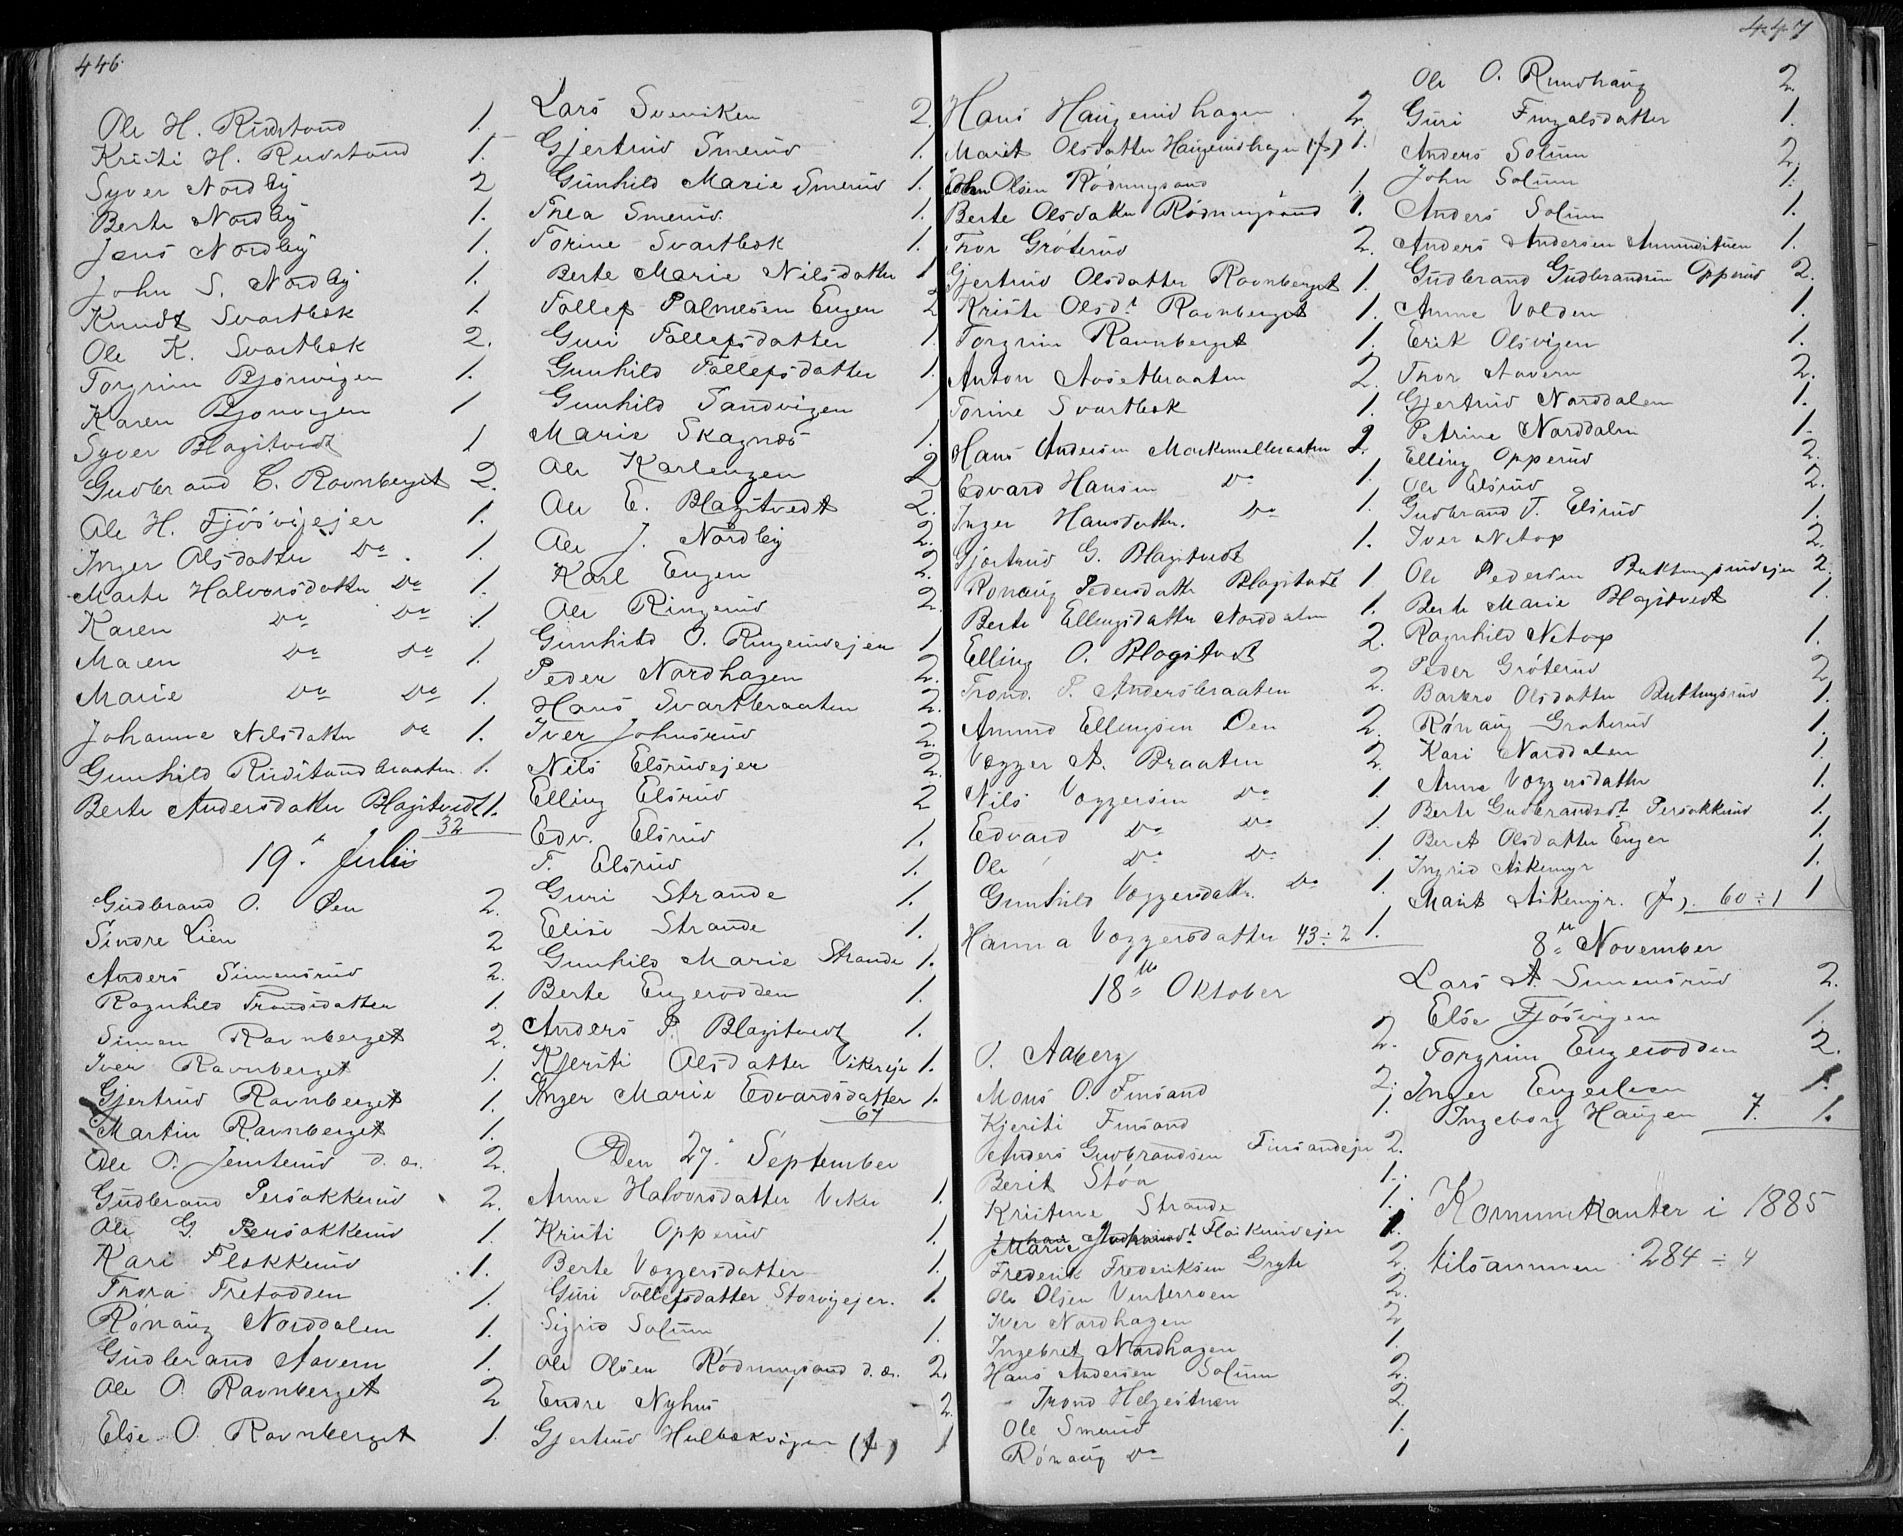 446
Ole H. Rudstand 1.
Kristi H. Rudstand 1.
Syver Nordby 2
Berte Nordby 1.
Jens Nordby 1.
John S. Nordby 1.
Knudt Svartbæk 1.
Ole K. Svartbæk 2.
Torgrim Bjørnvigen 1.
Karen Bjørnvigen 1
Syver Blagstvedt 1
Gudbrand C. Ravnberget 2.
Ole H. Fjøsvigejer 1.
Inger Olsdatter Do. 1.
Marte Halvorsdatter Do 1.
Karen Do Do 1.
Maren Do Do 1.
Marie Do Do 1.
Johanne Nilsdatter Do 1.
Gunhild Rudstandbraaten 1.
Berte Andersdatter Blagstvedt 1.
32
19. Julii
Gudbrand O. Øen 2.
Sindre Lien 2
Anders Simensrud 2.
Ragnhild Trondsdatter 1.
Simen Ravnberget 2.
Iver Ravnberget 1.
Gjertrud Ravnberget 1.
Martin Ravnberget 1.
Ole P. Jemterud d. æ. 2.
Gudbrand Persokkerud 2.
Ole G. Persokkerud 1.
Kari Flokkerud 1.
Thora Tretodden 1.
Rønaug Norddalen 1.
Gudbrand Aavern 1.
Ole O. Ravnberget 2
Else O. Ravnberget 1.
Lars Sveniken 2.
Gjertrud Smerud 1.
Gunhild Marie Smerud 1.
Thea Smerud 1.
Torine Svartbæk 1.
Berte Marie Nilsdatter 1
Tollef Palmesen Engen 2
Guri Tollefsdatter 1
Gunhild Tollefsdatter 1.
Gunhild Sandvigen 1
Marie Skagnæs 1.
Ole Karlengen 2
Ole E. Blagstvedt 2.
Ole J. Nordby 2.
Karl Engen 2.
Ole Ringerud 2.
Gunhild O. Ringerudejen 1
Peder Nordhagen 2.
Hans Svartbraaten 2.
Iver Johnsrud 2.
Nils Elsrudejer 2.
Elling Elsrud 2
Edv. Elsrud 1.
T. Elsrud 1.
Guri Strande 1.
Elise Strande 1.
Gunhild Marie Strande 1.
Berte Engerodden 1.
Anders P. Blagstvedt 1.
Kjersti Olsdatter Vikereje 1.
Inger Marie Edvardsdatter 1.
67
Den 27. September
Anne Halvorsdatter Viker 1.
Kristi Opperud 1.
Berte Væggersdatter 1.
Guri Tollefsdatter Storvigejer. 1.
Sigrid Solum 1.
Ole Olsen Rødningsand d. æ. 2.
Endre Nyhus 2.
Gjertrud Hulbækvigen (f) 1
447
Hans Haugerudhagen 2.
Marit Olsdatter Haugerudhagen (f) 1.
John Olsen Rødningsand 1.
Berte Olsdatter Rødningsand 1.
Thor Grøterud 2.
Gjertrud Olsdatter Ravnberget 1.
Kristi Olsdt Ravnberget 1.
Torgrim Ravnberget 1.
Anton Aasetbraaten 2.
Torine Svartbæk 1.
Hans Andersen Morkemelbraaten 2.
Edvard Hansen Do 1.
Inger Hansdatter. Do 1.
Gjertrud G. Blagstvedt 1.
Rønaug Pedersdatter Blagstvedt 1
Berte Ellingsdatter Norddalen 1.
Elling O. Blagstvedt 2.
Trond P. Andersbraaten 2.
Amund Ellingsen Øen 2.
Vægger A. Braaten 2.
Nils Væggersen Do 1.
Edvard Do Do 1.
Ole Do Do 1.
Gunhild Væggersdatter Do 1.
Hanna Væggersdatter 43 ÷ 2 1.
18de Oktober
O. Aaberg 2.
Mons O. Finsand 2.
Kjersti Finsand 1.
Anders Gudbrandsen Finsandeje 2.
Berit Støa 1.
Kristine Strande 1.
Marie Flaskerudejer 1.
Frederik Frederiksen Gryte 2.
Ole Olsen Vinterroen 2.
Iver Nordhagen 2
Ingebret Nordhagen 1.
Hans Andersen Solum 2.
Trond Helgestuen 2.
Ole Smerud 1.
Rønaug Do 1
Ole O. Rundhaug 2.
Guri Fingalsdatter 1.
Anders Solum 2.
John Solum 1.
Anders Solum 1.
Anders Andersen Amundstuen 1.
Gudbrand Gudbrandsen Opperud 2.
Anne Volden 1.
Erik Olsvigen 1.
Thor Aavern 2.
Gjertrud Norddalen 1.
Petrine Norddalen 1.
Elling Opperud 2.
Ole Elsrud 2.
Gudbrand T. Elsrud 1.
Iver Netop 2.
Ole Pedersen Buttingsrudejer 2.
Berte Marie Blagstvedt 1.
Ragnhild Netop 1.
Peder Grøterud 2
Barbro Olsdatter Buttingsrud 1.
Rønaug Grøterud 1.
Kari Norddalen 1.
Anne Væggersdatter 1.
Berte Gudbrandsdt Persokkerud 1.
Berit Olsdatter Enger 1.
Ingrid Askemyr 1.
Marit Askemyr. (f). 60 ÷ 1 1
8de November
Lars A. Simensrud 2.
Else Fjøsvigen 1.
Torgrim Engerodden 2.
Inger Engerlien 1.
Ingeborg Haugen 7. 1.
Kommunikanter i 1885
tilsammen 284 ÷ 4